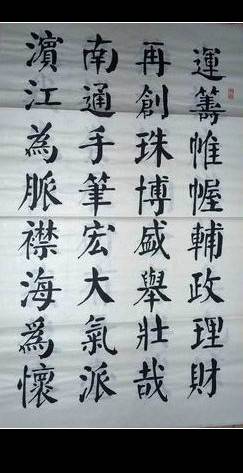 運籌帷幄輔政理財
再創珠博盛舉壯哉
南通手筆宏大氣派
濱江為脈襟海為懷